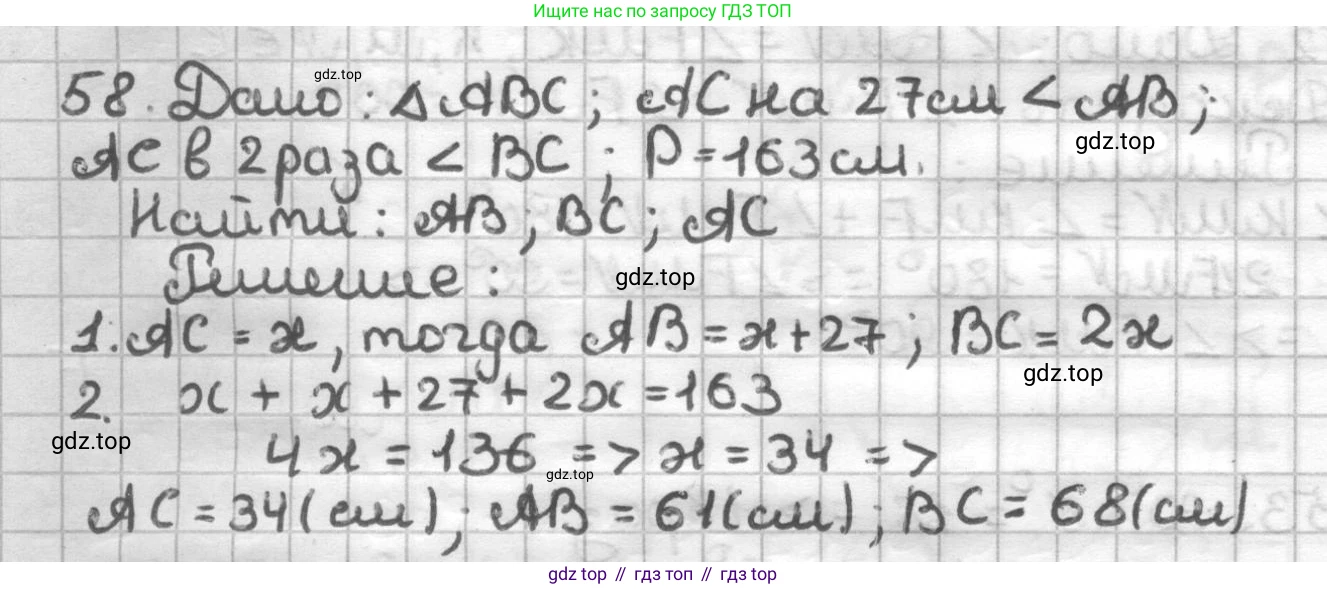 Ищите нас по запросу ГДЗ ТОП
gdz.top
58. Дано: △ABC; AC на 27см < AB;
gdz.top
AC в 2 раза < BC; P=163см.
Найти: AB; BC; AC
Решение:
gdz.top
1. AC = x, тогда AB = x+27; BC = 2x
gdz.top
2. x + x + 27 + 2x = 163
gdz.top
4x = 136 => x = 34 =>
gdz.top
AC = 34(см); AB = 61(см); BC = 68(см)
gdz top // гдз топ // gdz top